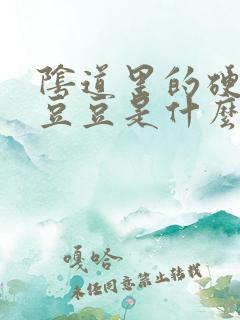 陰道里的硬
豆豆是什麽
嘎哈
未经同意禁止转载